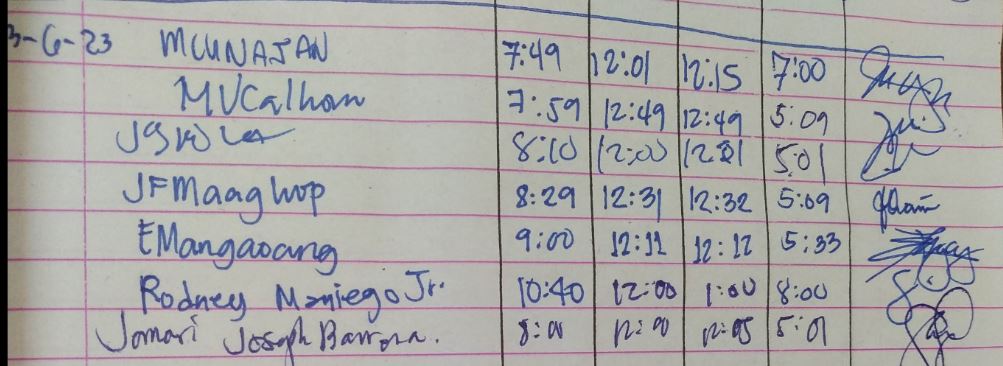 3-6-23 MCUNAJAN 7:49 12:01 12:15 7:00
MVCalhan 7:59 12:49 12:49 5:09
8:10 12:00 12:01 5:01
JFMaaghop 8:29 12:31 12:32 5:09
EMangaoang 9:00 12:11 12:12 5:33
Rodney Maniego Jr. 10:40 12:00 1:00 8:00
Jomari Joseph Barrona. 8:00 12:00 12:05 5:01